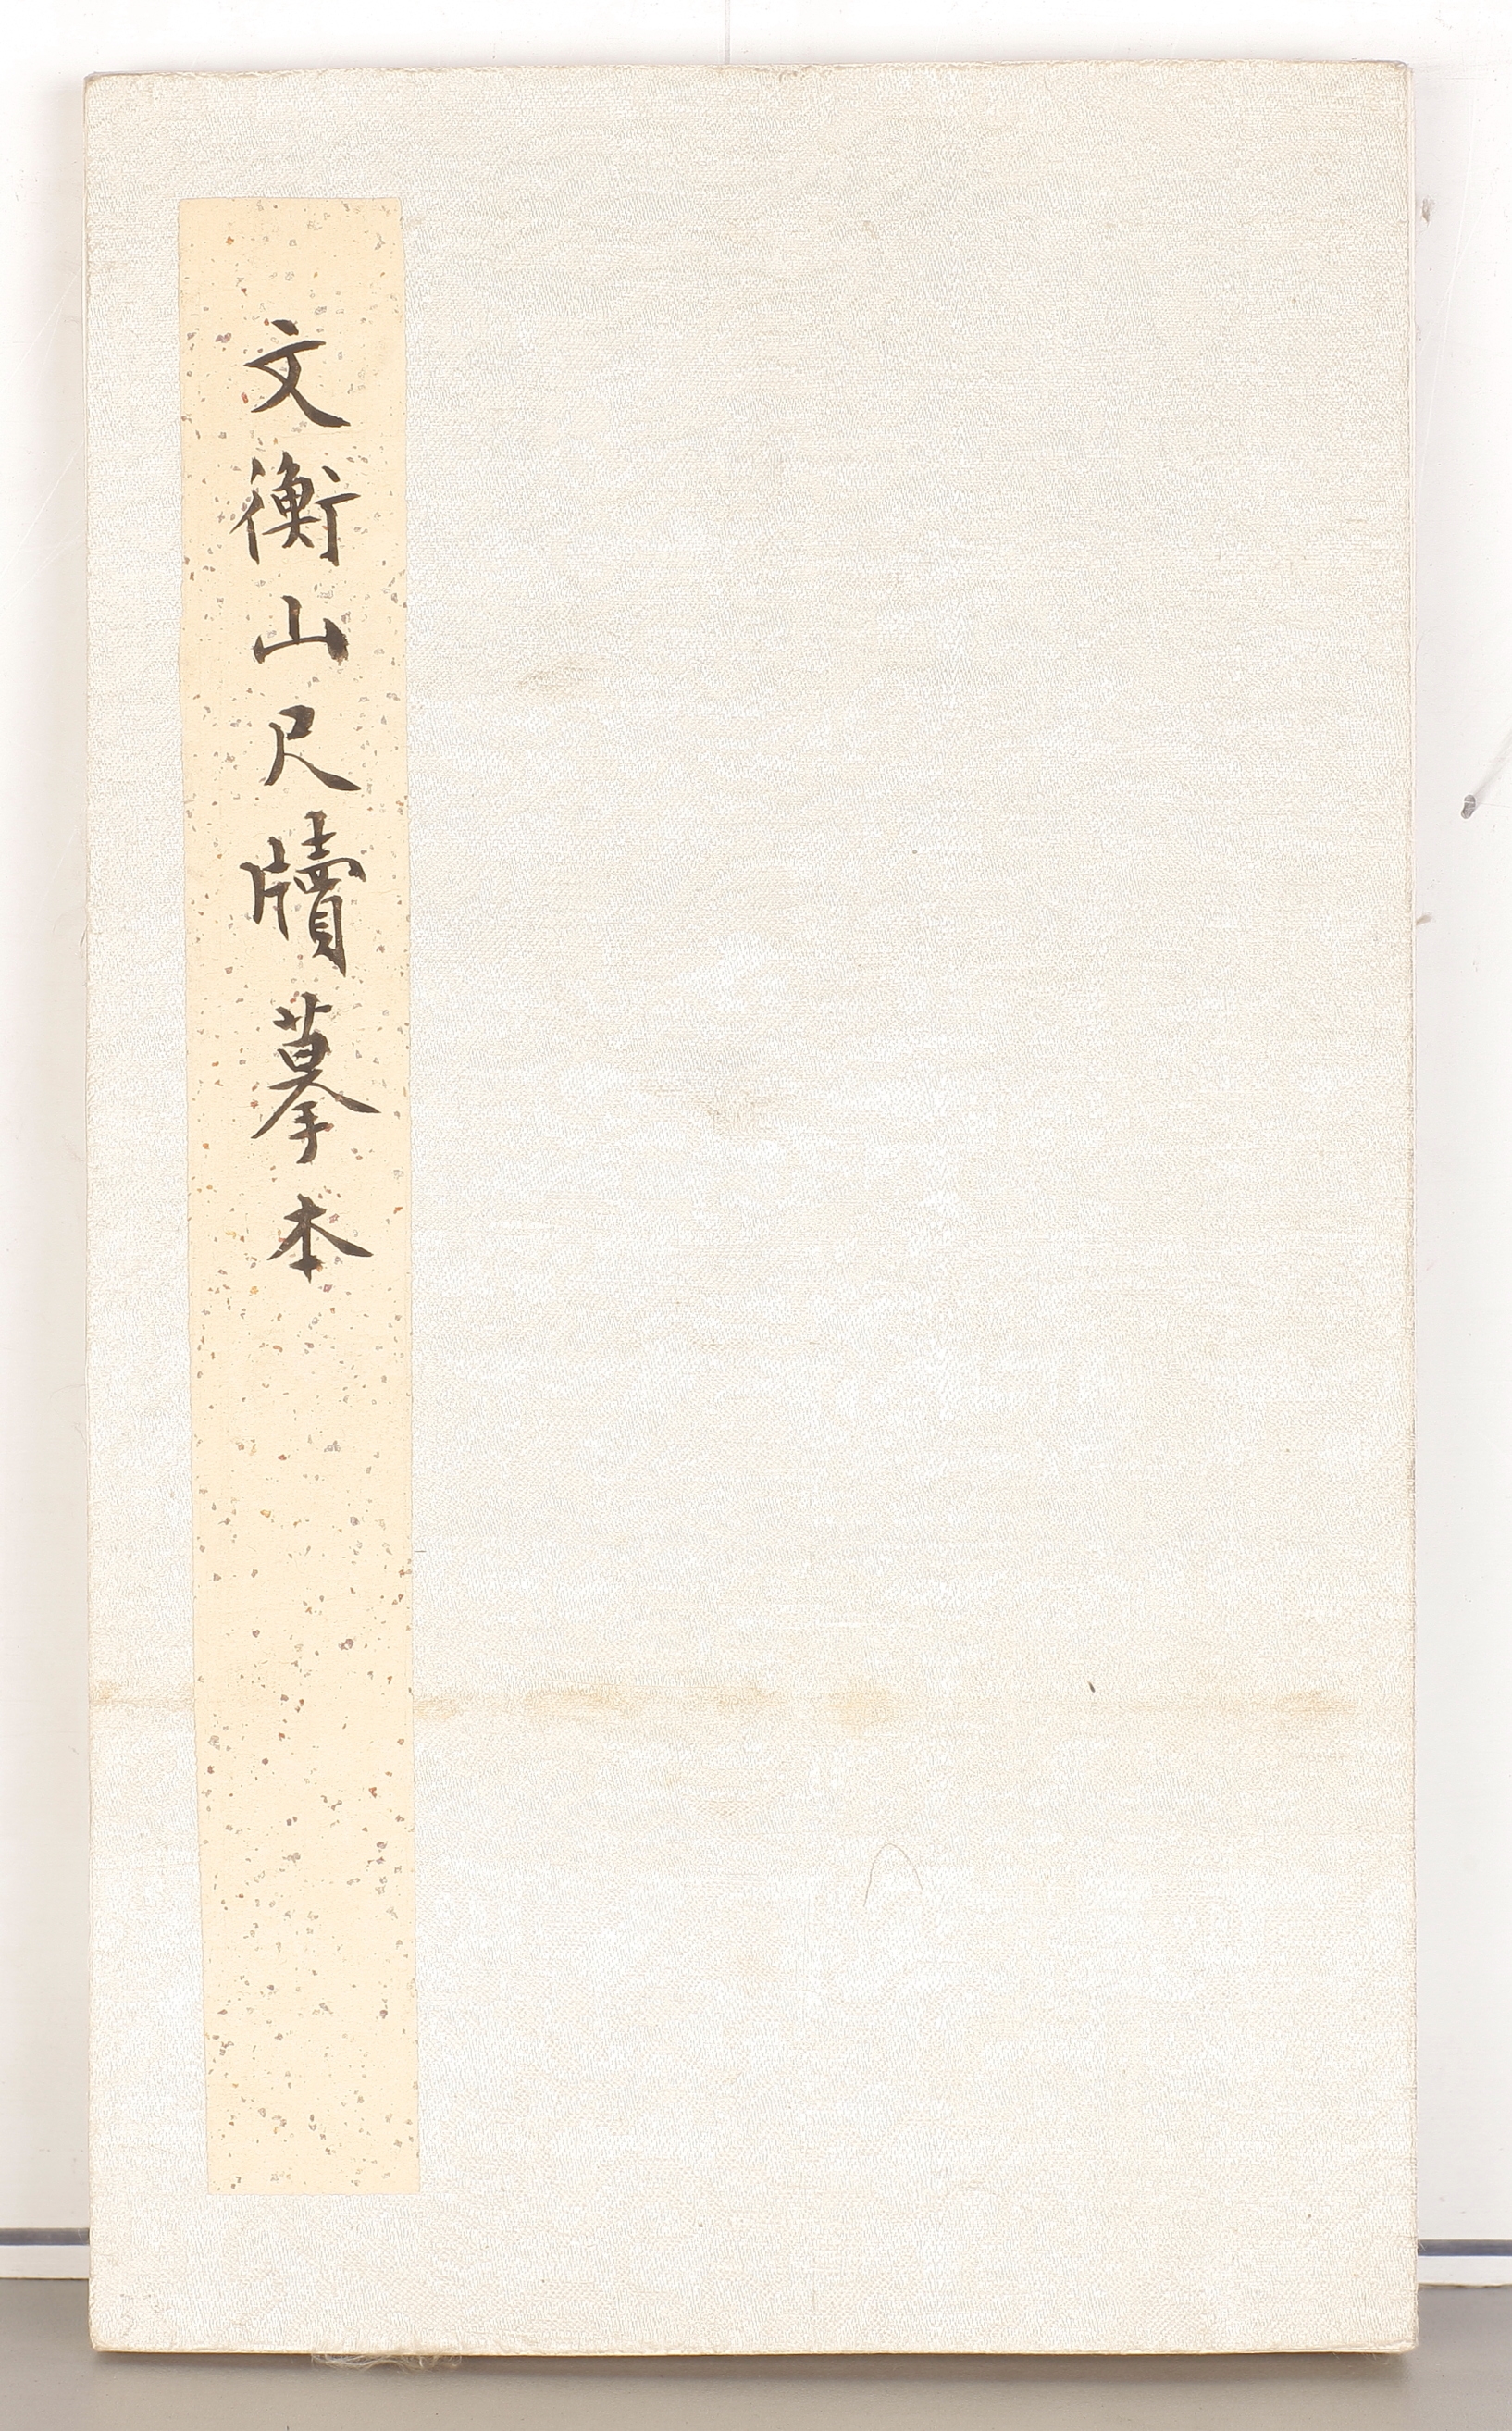 文衡山尺牘摹本